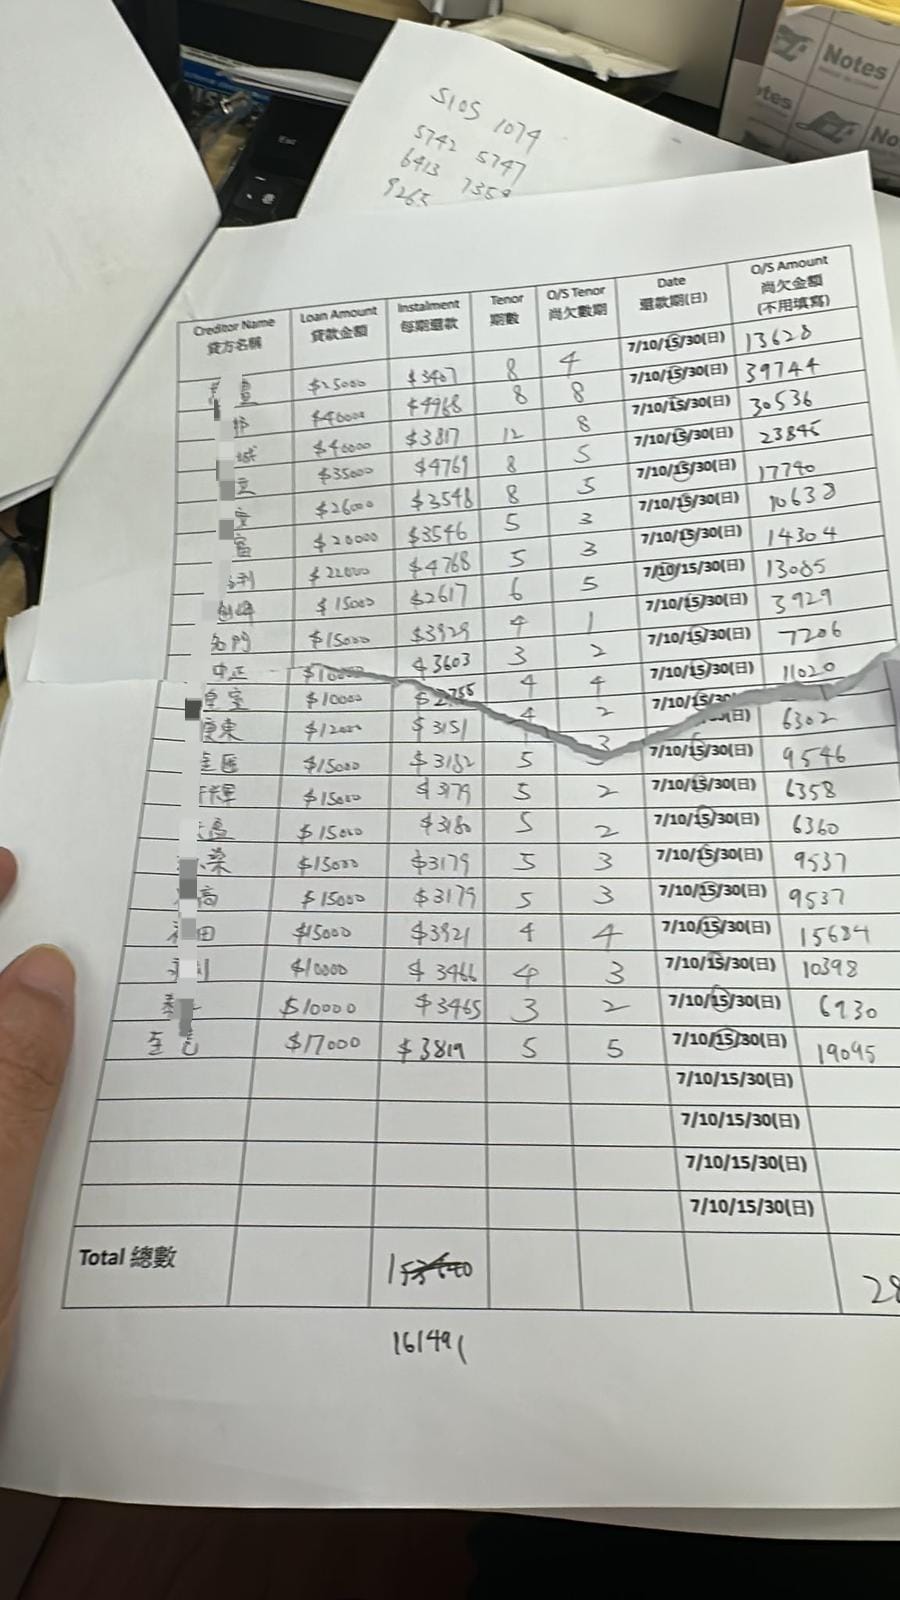 Notes
5105 1074
5742 5747
6413 7359
9265
Creditor Name 貸方名稱 Loan Amount 貸款金額 Instalment 每期還款 Tenor 期數 O/S Tenor 尚欠數期 Date 還款期(日) O/S Amount 尚欠金額 (不用填寫)
$25000 $3407 8 4 7/10/15/30(日) 13628
$40000 $4968 8 8 7/10/15/30(日) 39744
城 $40000 $3817 12 8 7/10/15/30(日) 30536
$35000 $4769 8 5 7/10/15/30(日) 23845
$26000 $3548 8 5 7/10/15/30(日) 17740
富 $20000 $3546 5 3 7/10/15/30(日) 10638
利 $22000 $4768 5 3 7/10/15/30(日) 14304
$15000 $2617 6 5 7/10/15/30(日) 13085
名門 $15000 $3929 4 1 7/10/15/30(日) 3929
中正 $10000 $3603 3 2 7/10/15/30(日) 7206
皇室 $10000 $2755 4 4 7/10/15/30(日) 11020
東 $12000 $3151 4 2 7/10/15/30(日) 6302
匯 $15000 $3182 5 3 7/10/15/30(日) 9546
輝 $15000 $3179 5 2 7/10/15/30(日) 6358
$15000 $3180 5 2 7/10/15/30(日) 6360
榮 $15000 $3179 5 3 7/10/15/30(日) 9537
高 $15000 $3179 5 3 7/10/15/30(日) 9537
田 $15000 $3921 4 4 7/10/15/30(日) 15684
$10000 $3466 4 3 7/10/15/30(日) 10398
$10000 $3465 3 2 7/10/15/30(日) 6930
$17000 $3819 5 5 7/10/15/30(日) 19095
7/10/15/30(日)
7/10/15/30(日)
7/10/15/30(日)
7/10/15/30(日)
Total 總數 28
161491